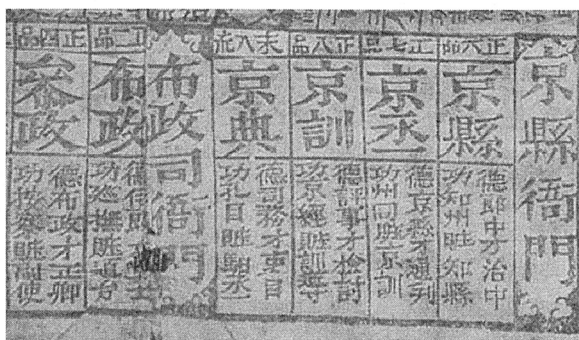 京縣衙門
正六品
京縣
德郎中才治中
功知州賍知縣
正七品
京丞
德京縣才通判
功州同賍京訓
正八品
京訓
德評事才檢討
功京經賍訓導
未入流
京典
德司務才吏目
功孔目賍驛丞
布政司衙門
二品
布政
德侍郎
功巡撫賍道台
正四品
參政
德布政才正卿
功按察賍副使